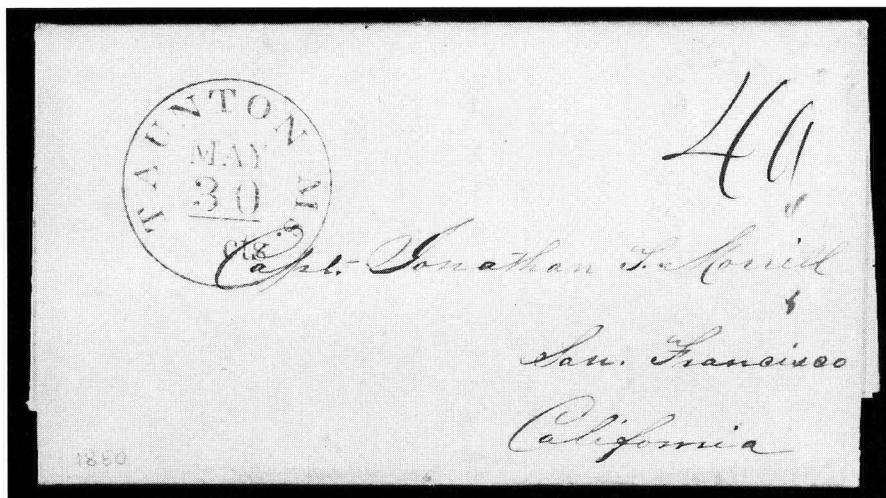 TAUNTON Ms.
MAY
30
cts
40
Capt. Jonathan S. Morrill
San. Francisco
California
1850